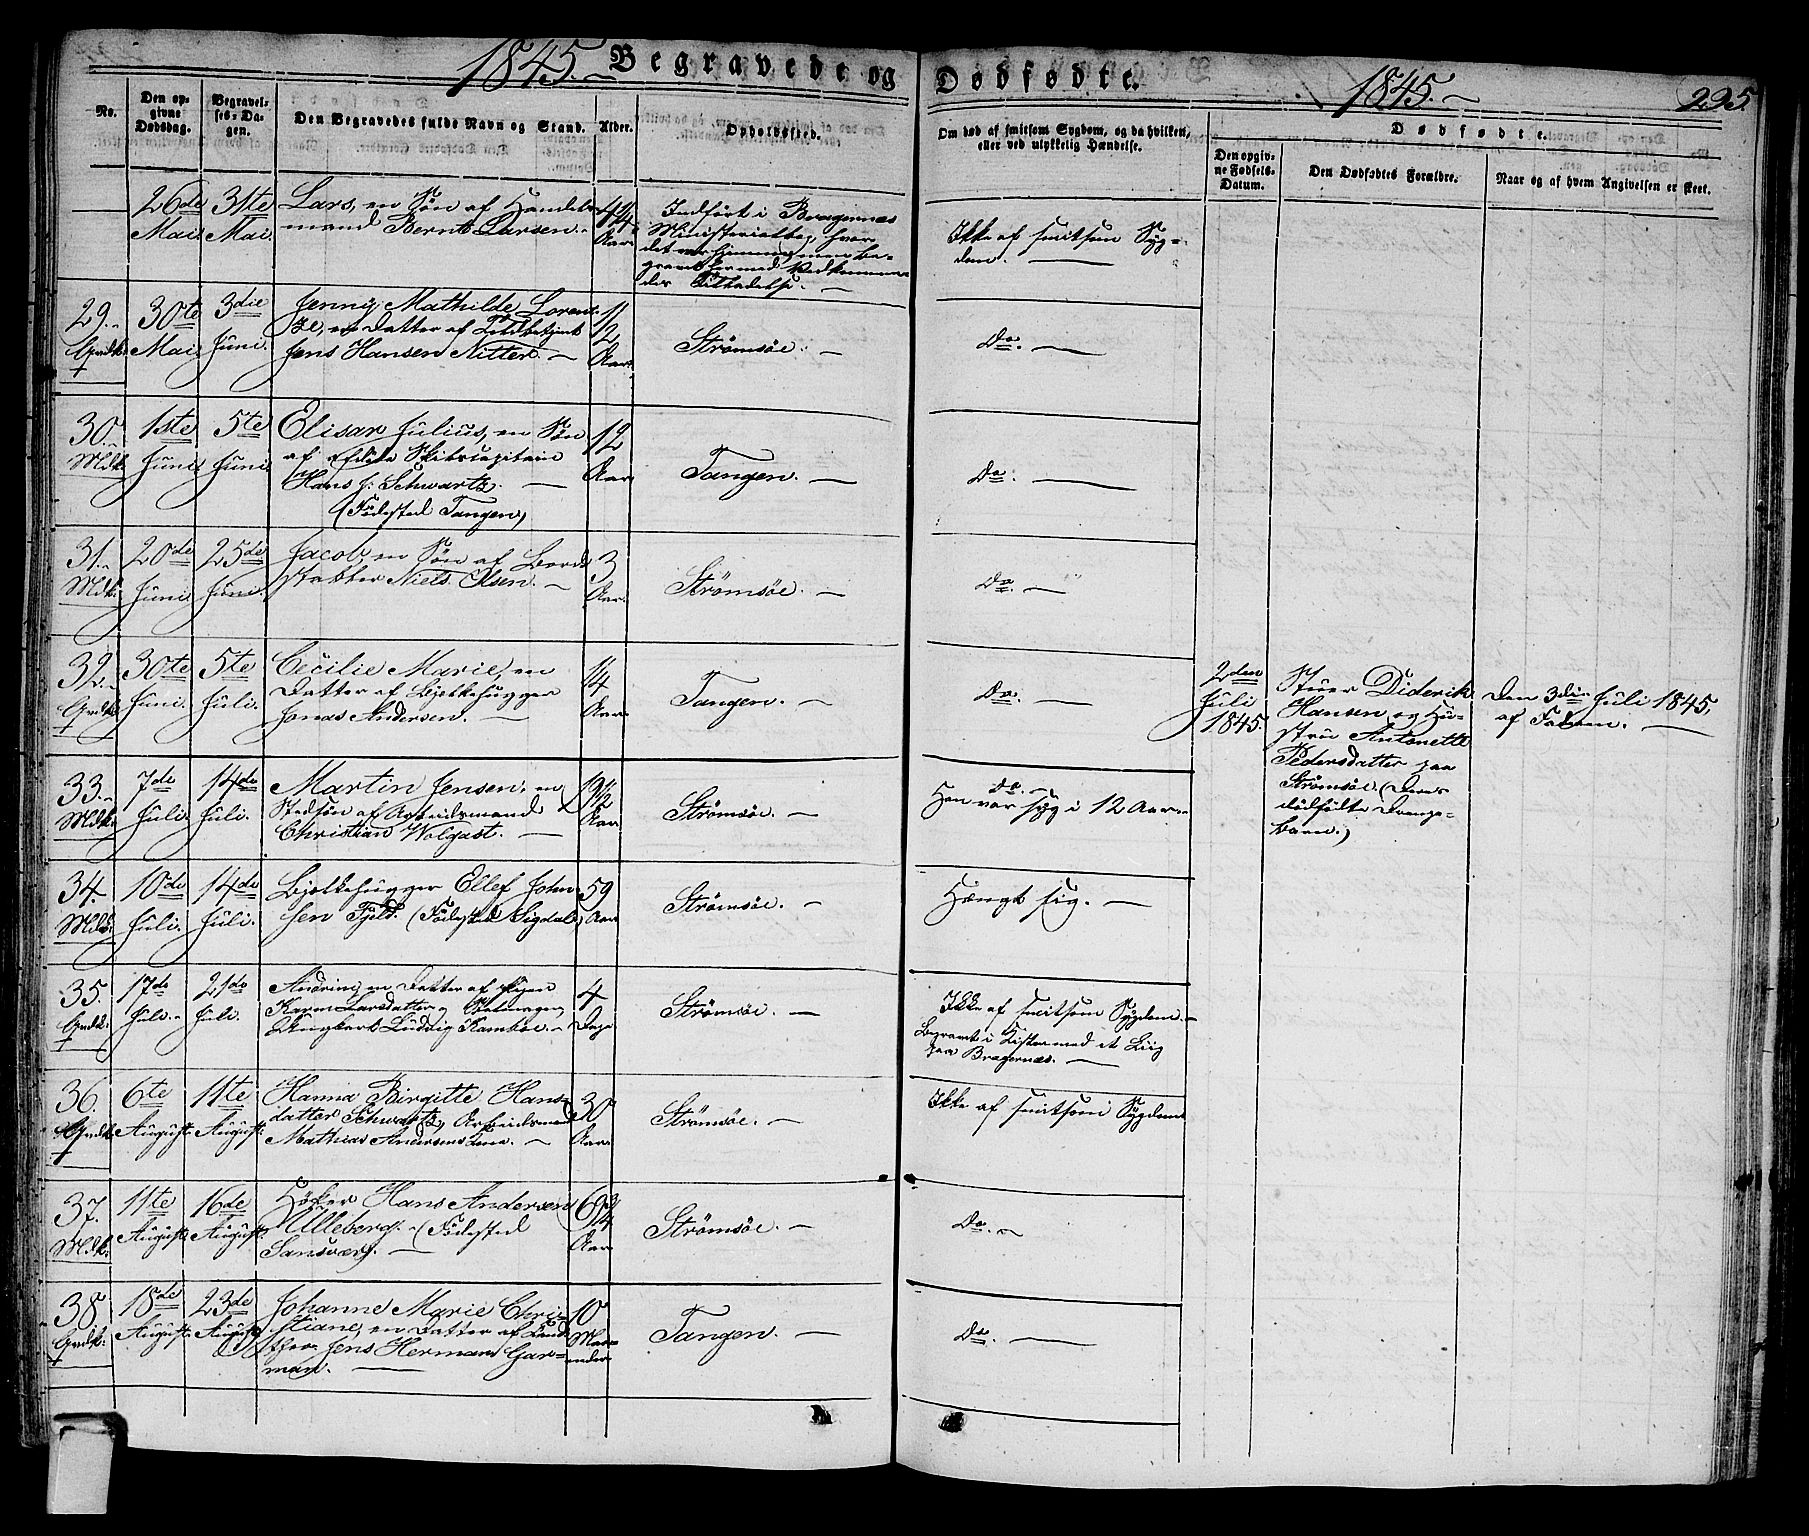 1845. Begravede og Dødfødte. 1845. 295.
No.
Den opgivne Dødsdag.
Begravelses-Dagen.
Den Begravedes fulde Navn og Stand.
Alder.
Opholdssted.
Om død af smitsom Sygdom, og da hvilken, eller ved ulykkelig Hændelse.
Dødfødte.
Den opgivne Fødsels-Datum.
Den Dødfødtes Forældre.
Naar og af hvem Angivelsen er skeet.
26de Mai. 31te Mai.
Lars, en Søn af Handels-
mand Bernt Larsen.
Aar.
Indført i Bragernæs
Ministerialbog, hvor
det var hjemme, men be-
gravet her med Vedkommen-
des Tilladelse.
Ikke af smitsom Syg-
dom.
29. Qvdk.
30te Mai. 3die Juni.
Jenny Mathilde Lorent-
ze, en Datter af
Jens Hansen Nitter.
1/2 Aar.
Strømsøe.
Do.
30. Mdk.
1ste Juni. 5te Juni.
Elisar Julius, en Søn
af Skibscapitain
Hans J. Schwartz.
(Fødested Tangen)
12 Aar.
Tangen.
Do.
31. Mdk.
20de Juni. 25de Juni.
Jacob, en Søn af Bord-
stabler Niels Olsen.
3 Aar.
Strømsøe.
Do.
32. Qvdk.
30te Juni. 5te Juli.
Cecilie Marie, en
Datter af Bjelkehugger
Jonas Andersen.
1/4 Aar.
Tangen.
Do.
2den Juli 1845.
Stuer Diderik
Hansen og Hu-
stru Antonette
Pedersdatter paa
Strømsøe. (Deres
dødfødte Drenge-
barn.)
Den 3die Juli 1845,
af Faderen.
33. Mdk.
7de Juli. 14de Juli.
Martin Jensen, en
Stedsøn af Arbeidsmand
Christian Wolgast.
Aar.
Strømsøe.
Do.
Han var syg i 12 Aar.
34. Mdk.
10de Juli. 14de Juli.
Bjelkehugger Ellef John-
sen Fjeld. (Fødested Sigdal)
59 Aar.
Strømsøe.
Hængt sig.
35. Qvdk.
17de Juli. 21de Juli.
en Datter af Pigen
Karen Larsdatter og
Ludvig
4 Dage.
Strømsøe.
Ikke af smitsom Sygdom.
Begravet i Kiste med et Liig
paa Bragernæs.
36. Qvdk.
6te August. 11te August.
Hanna Birgitte Hans-
datter Schwartz, Arbeidsmand
Mathias Andersens Kone.
30 Aar.
Strømsøe.
Ikke af smitsom Sygdom.
37. Mdk.
11te August. 16de August.
Høker Hans Andersen
Ulleberg. (Fødested
Sandsvær).
69 3/4 Aar.
Strømsøe.
Do.
38. Qvdk.
18de August. 23de August.
Johanne Marie Chri-
stiane, en Datter af
Jens Herman Gar-
man.
10 Maa-
neder.
Tangen.
Do.